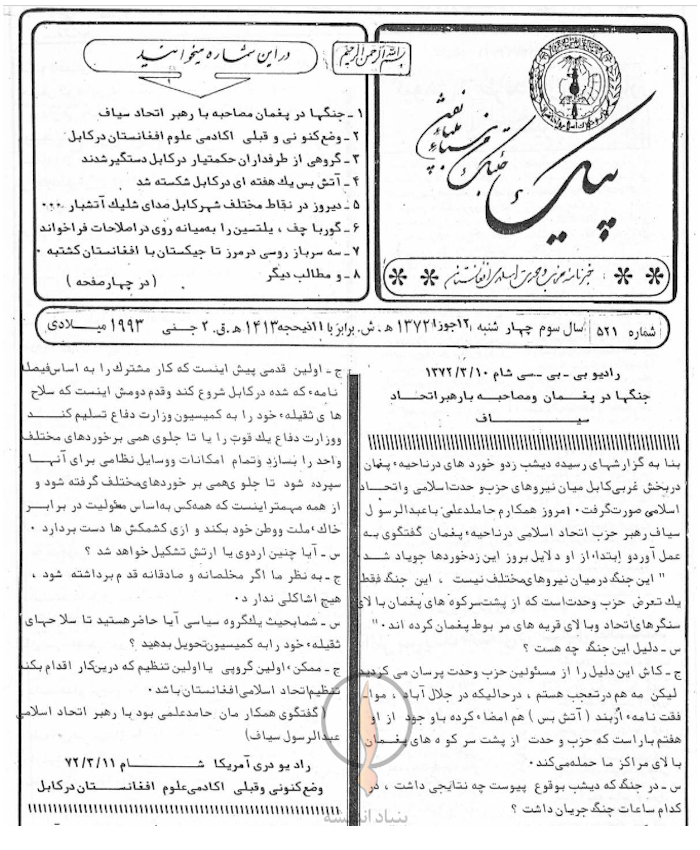 بسم الله الرحمن الرحیم
در این شماره میخوانید
۱ ـ جنگها در پغمان مصاحبه با رهبر اتحاد سیاف
۲ ـ وضع کنونی و قبلی اکادمی علوم افغانستان در کابل
۳ ـ گروهی از طرفداران حکمتیار در کابل دستگیر شدند
۴ ـ آتش بس یک هفته ای در کابل شکسته شد
۵ ـ دیروز در نقاط مختلف شهر کابل صدای شلیک آتشبار ۰۰۰
۶ ـ گورباچف ، یلتسین را به میانه روی در اصلاحات فراخواند
۷ ـ سه سرباز روسی در مرز تاجیکستان با افغانستان کشته ۰
۸ ـ و مطالب دیگر
( در چهار صفحه )
پیک
خبرنامه حزب وحدت اسلامی افغانستان
شماره ۵۲۱ سال سوم چهار شنبه ۱۲ جوزا ۱۳۷۲ ه . ش . برابر با ۱۱ ذیحجه ۱۴۱۳ ه . ق . ۲ جنی ۱۹۹۳ میلادی
رادیو بی - بی - سی شام ۱۳۷۲/۳/۱۰
جنگها در پغمان ومصاحبه با رهبر اتحاد
سیاف
بنا به گزارشهای رسیده دیشب زدو خورد های در ناحیهء پغمان
در بخش غربی کابل میان نیروهای حزب وحدت اسلامی و اتحاد
اسلامی صورت گرفت ۰ امروز همکارم حامد علمی با عبدالرسول
سیاف رهبر حزب اتحاد اسلامی در ناحیهء پغمان گفتگوی به
عمل آوردو ابتدا از او دلایل بروز این زدخوردها جویاد شد ۰
" این جنگ در میان نیروهای مختلف نیست ، این جنگ فقط
یک تعرض حزب وحدت است که از پشت سرکوه های پغمان با لای
سنگرهای اتحاد وبا لای قریه های مربوط پغمان کرده اند ۰ "
س - دلیل این جنگ چه هست ؟
ج - کاش این دلیل را از مسئولین حزب وحدت پرسان می کردید
لیکن مه هم در تعجب هستم ، در حالیکه در جلال آباد ، موا-
فقت نامهء اوربند ( آتش بس ) هم امضاء کرده با وجود از او
هفتم بار است که حزب وحدت از پشت سر کوه های پغمان
با لای مراکز ما حمله می کند ۰
س - در جنگ که دیشب بوقوع پیوست چه نتایجی داشت ، در
کدام ساعات جنگ جریان داشت ؟
ج - اولین قدمی پیش اینست که کار مشترک را به اساس فیصله
نامهء که شده در کابل شروع کند وقدم دومش اینست که سلاح
های ثقیلهء خود را به کمیسیون وزارت دفاع تسلیم کنند
ووزارت دفاع یک قوت را یا تا جلوی همی برخوردهای مختلف
واحد را بسازد وتمام امکانات ووسایل نظامی برای آنها
سپرده شود تا جلوی همی برخوردهای مختلف گرفته شود و
از همه مهمتر اینست که همه کس به اساس مئولیت در برابر
خاک ، ملت ووطن خود بکند و ازی کشمکش ها دست بردارد ۰
س - آیا چنین اردوی یا ارتش تشکیل خواهد شد ؟
ج - به نظر ما اگر مخلصانه و صادقانه قدم برداشته شود ،
هیچ اشکالی ندارد ۰
س - شما بحیث یک گروه سیاسی آیا حاضر هستید تا سلاحهای
ثقیلهء خود را به کمیسیون تحویل بدهید ؟
ج - ممکن ، اولین گروپی یا اولین تنظیم که درین کار اقدام بکند
تنظیم اتحاد اسلامی افغانستان باشد ۰
( گفتگوی همکار مان حامد علمی بود با رهبر اتحاد اسلامی
عبدالرسول سیاف )
رادیو دری آمریکا شام ۷۲/۳/۱۱
وضع کنونی وقبلی اکادمی علوم افغانستان در کابل
بنیاد اندیشه